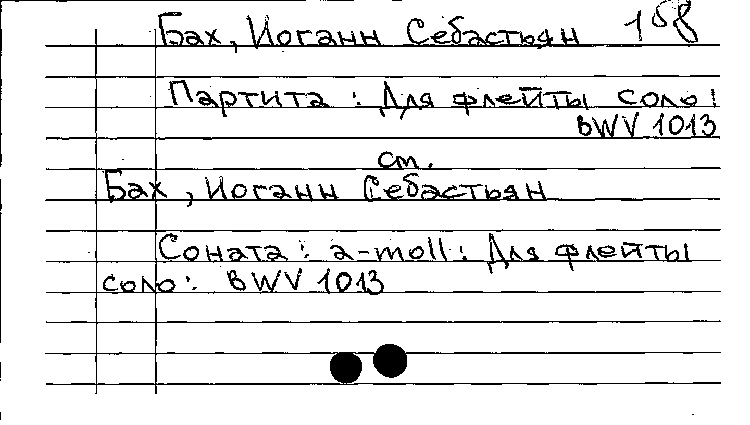 Бах, Иоганн Себастьян 158
Партита : Для флейты соло :
BWV 1013
см.
Бах, Иоганн Себастьян
Соната : a-moll : Для флейты
соло : BWV 1013